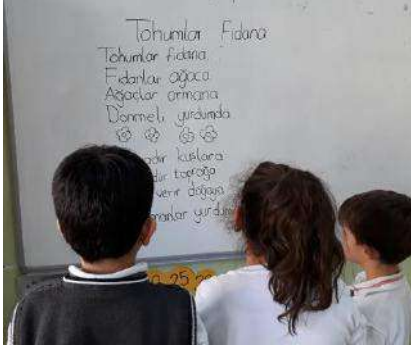 Tohumlar Fidana
Tohumlar fidana
Fidanlar ağaca
Ağaçlar ormana
Dönmeli yurdumda
kuşlara
toprağa
verir doğaya
25